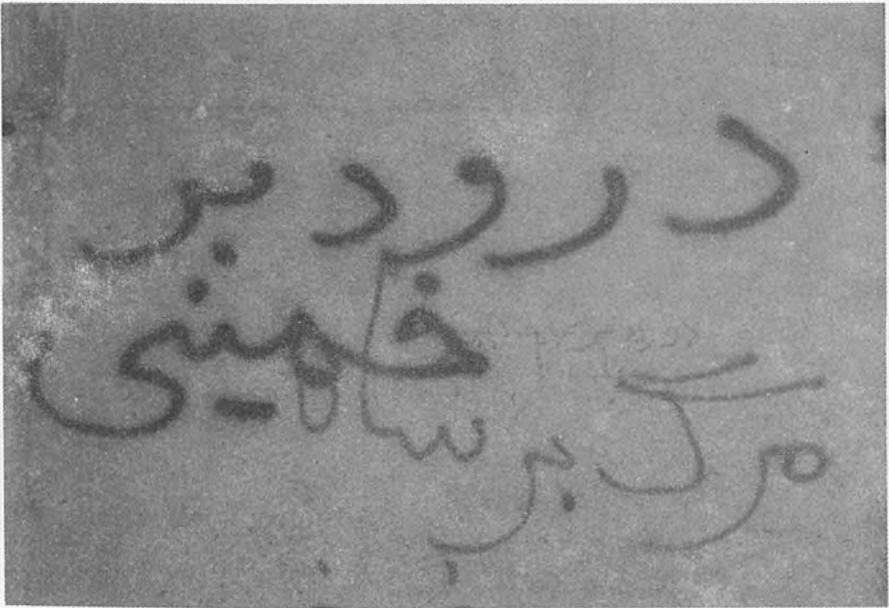 درود بر
خمینی
مرگ بر شاه